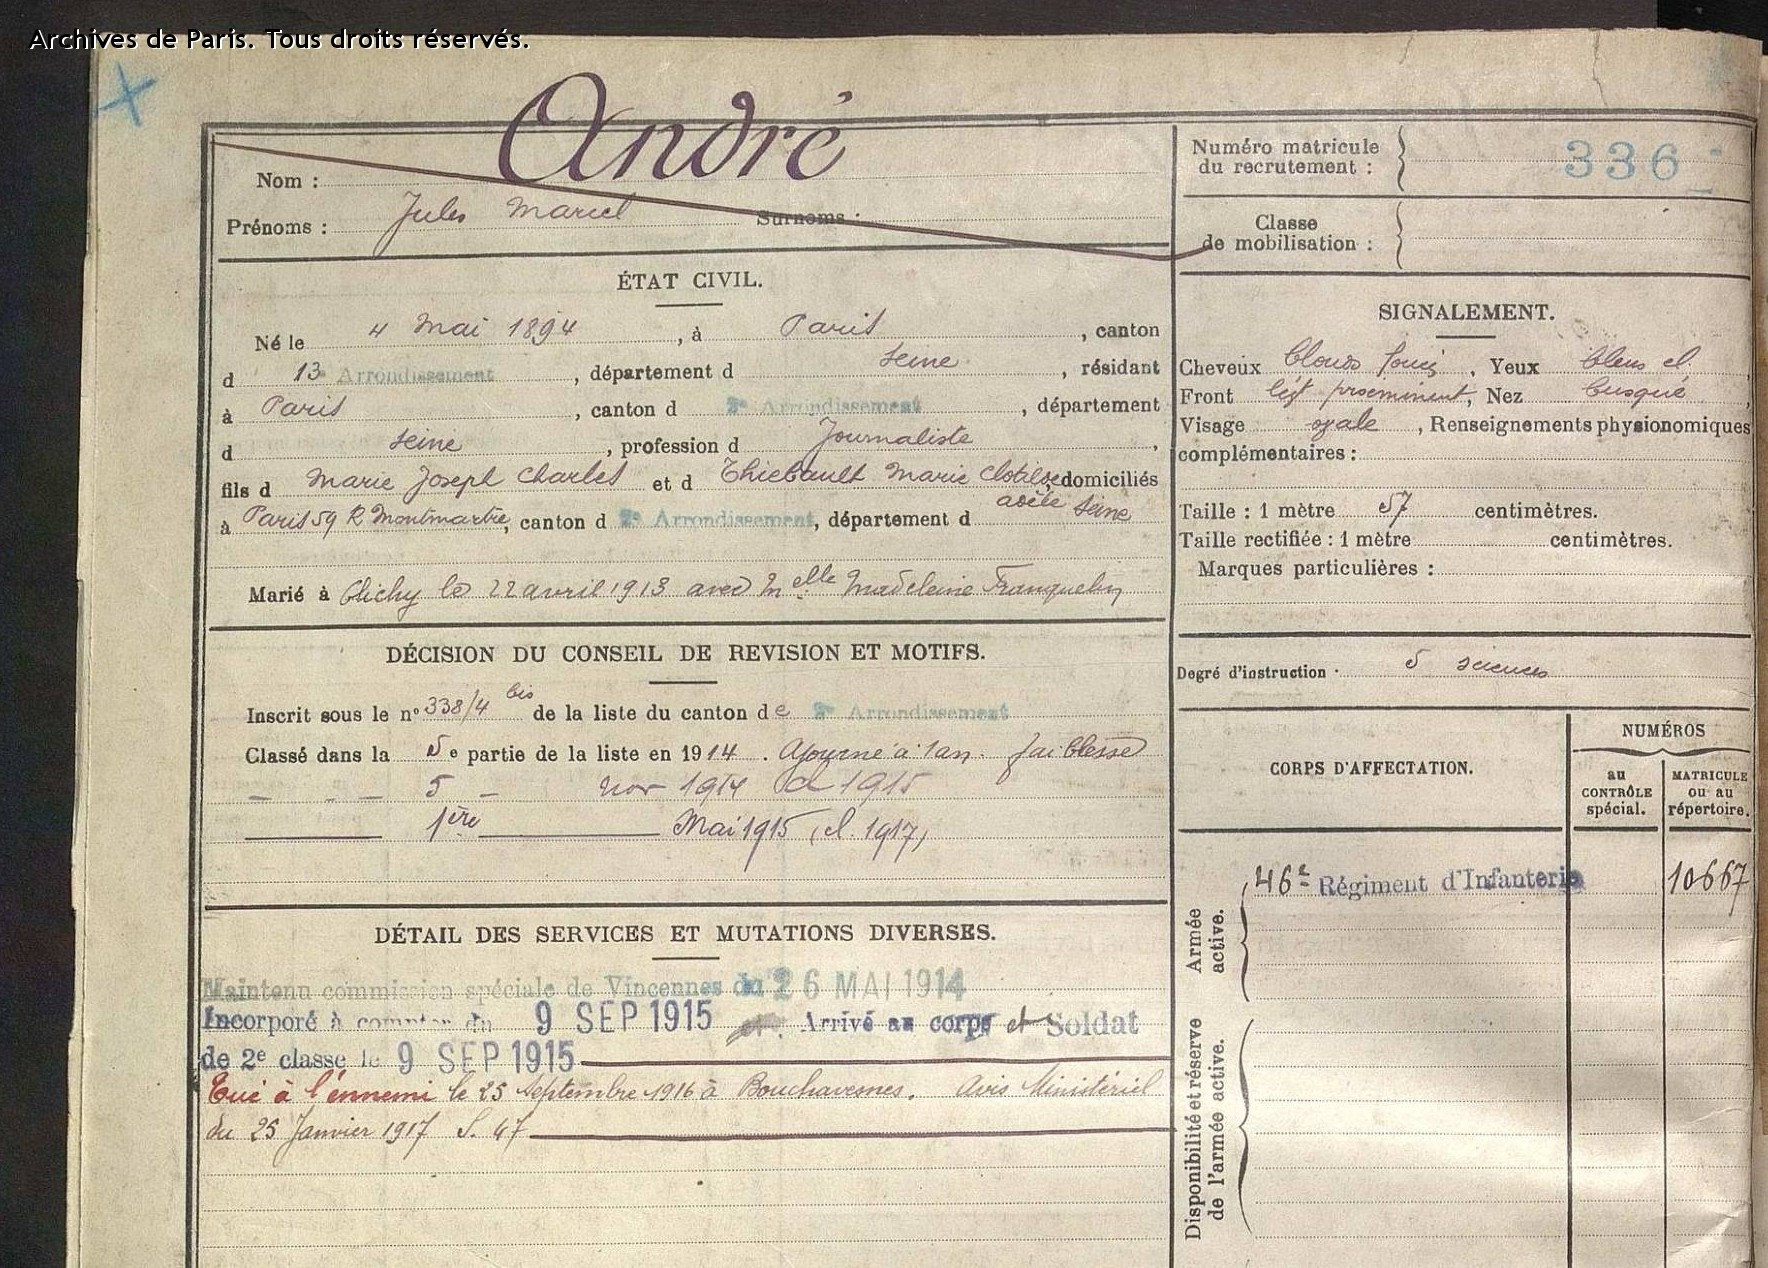 Archives de Paris. Tous droits réservés.
André
Nom :
Prénoms : Jules Marcel Surnoms :
Numéro matricule
du recrutement : 336
Classe
de mobilisation :
ÉTAT CIVIL.
Né le 4 Mai 1894, à Paris, canton
d 13e Arrondissement, département d Seine, résidant
à Paris, canton d 2e Arrondissement, département
d Seine, profession d Journaliste,
fils d Marie Joseph Charles et d Thiebault Marie Clotilde, domiciliés
adèle
à Paris 59 R Montmartre, canton d 2e Arrondissement, département d Seine
Marié à Clichy le 22 avril 1913 avec Melle Madeleine Franquelin
SIGNALEMENT.
Cheveux blonds, Yeux bleus cl.
Front prominent, Nez busqué,
Visage ovale, Renseignements physionomiques
complémentaires :
Taille : 1 mètre 57 centimètres.
Taille rectifiée : 1 mètre centimètres.
Marques particulières :
Degré d'instruction · 5 sciences
DÉCISION DU CONSEIL DE REVISION ET MOTIFS.
Inscrit sous le n° 338/4 bis de la liste du canton de 2e Arrondissement
Classé dans la 5e partie de la liste en 1914. Ajourné à 1 an. faiblesse
— - — 5 — nov 1914 cl 1915
1ère Mai 1915 (cl. 1917)
CORPS D'AFFECTATION.
NUMÉROS
au
CONTRÔLE
spécial.
MATRICULE
ou au
répertoire.
Armée
active.
46e Régiment d'Infanterie 10667
Disponibilité et réserve
de l'armée active.
DÉTAIL DES SERVICES ET MUTATIONS DIVERSES.
Maintenu commission spéciale de Vincennes du 26 MAI 1914
Incorporé à compter du 9 SEP 1915 Arrivé au corps et Soldat
de 2e classe le 9 SEP 1915
Tué à l'ennemi le 25 Septembre 1916 à Bouchavesnes. Avis Ministériel
du 25 Janvier 1917 S. 47